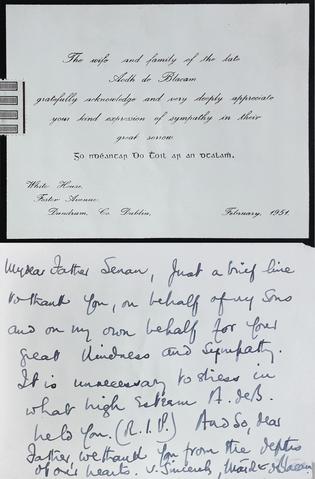 The wife and family of the late
Aodh de Blacam
gratefully acknowledge and very deeply appreciate
your kind expression of sympathy in their
great sorrow
Go ndéantar Do Thoil ar an dtalamh.
White House,
Foster Avenue,
Dundrum, Co. Dublin,
February, 1951.
My dear Father Senan, Just a brief line
to thank you, on behalf of my sons
and on my own behalf for your
great kindness and sympathy.
It is unnecessary to stress in
what high esteem A. deB.
held you. (R.I.P.) And so, dear
Father, we thank you from the depths
of our hearts. V. Sincerely, de Blacam